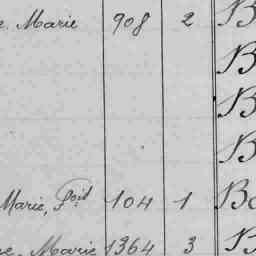 Marie 908 2 B
B
B
B
Marie, 104 1 Bo
Marie 1364 3 B